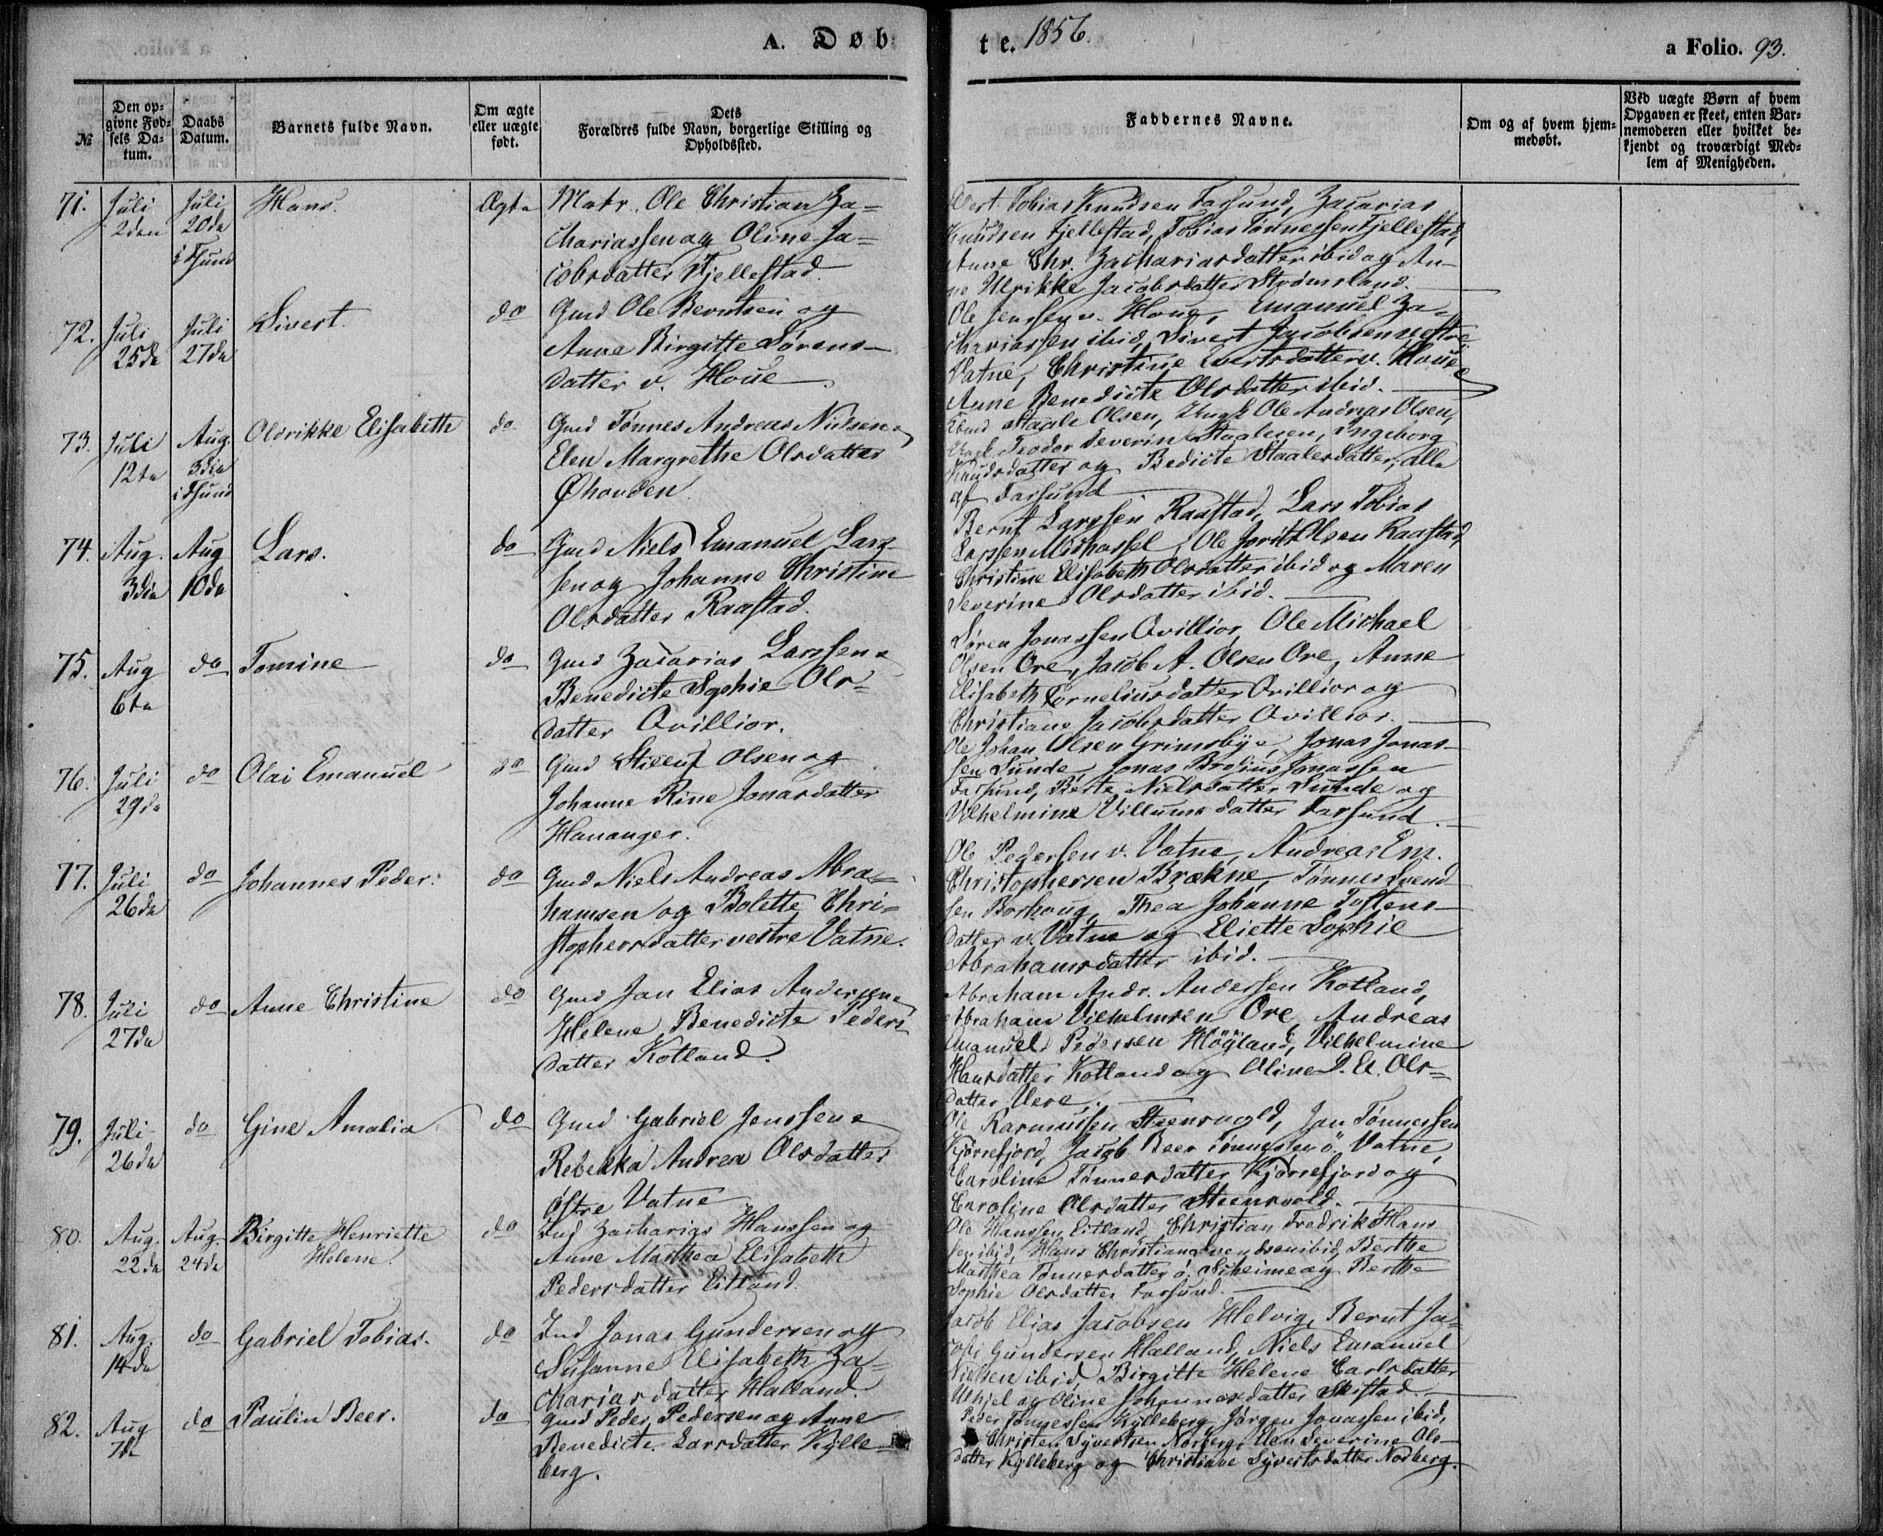 A. Døb
te. 1856.
a Folio. 93.
№
Den op-
givne Fød-
sels Da-
tum.
Daabs
Datum.
Barnets fulde Navn.
Om ægte
eller uægte
født.
Dets
Forældres fulde Navn, borgerlige Stilling og
Opholdssted.
Faddernes Navne.
Om og af hvem hjem-
medøbt.
Ved uægte Børn af hvem
Opgaven er skeet, enten Bar-
nemoderen eller hvilket be-
kjendt og troværdigt Med-
lem af Menigheden.
71. Juli
2den
Juli
20de
i Fsund
Hans.
Ægte
Matr. Ole Christian Za-
chariassen og Oline Ja-
cobsdatter Fjellestad.
Tobias Knudsen Farsund, Zacarias
Knudsen Fjellestad, Tobias Tønnessen Fjellestad,
Anne Chr. Zachariasdatter ibid og An-
ne Ulrikke Jacobsdatter Strømsland.
72. Juli
25de
Juli
27de
Sivert.
do
Gmd Ole Berntsen og
Anne Birgitte Sørens-
datter v. Houe
Ole Jenssen v. Houe, Emanuel Za-
chariassen ibid, Sivert Jacobsen vestre
Vatne, Christine Evertsdatter v. Houe
Anne Benedicte Olsdatter ibid.
73. Juli
12te
Aug.
3die
i Fsund
Oldrikke Elisabeth
do
Gmd Tønnes Andreas Nielsen
Elen Margrethe Olsdatter
Øhovden.
Staale Olsen, Ungk Ole Andreas Olsen,
Ungk Teodor Severin Staalesen, Ingeborg
Knudsdatter og Bedicte Staalesdatter, alle
af Farsund
74. Aug.
3die
Aug
10de
Lars.
do
Gmd Niels Emanuel Lars-
sen og Johanne Christine
Olsdatter Raastad.
Bernt Larssen Raastad, Lars Tobias
Larssen Mishassel, Ole Jorits Olsen Raastad,
Christine Elisabeth Olsdatter ibid og Maren
Severine Olsdatter ibid.
75. Aug
6te
do
Tomine
do
Gmd Zacarias Larssen
Benedicte Sophie Ols-
datter Qvillior.
Søren Jonassen Qvillior, Ole Michael
Olsen Ore, Jacob A. Olsen Ore, Anne
Elisabeth Corneliusdatter Qvillior og
Christiane Jacobsdatter Qvillior.
76. Juli
29de
do
Olai Emanuel
do
Gmd Stilluf Olsen og
Johanne Rine Jonasdatter
Hananger.
Ole Johan Olsen Grimsbye, Jonas Jonas-
sen Sunde, Jonas Brosius Jonassen
Farsund, Berte Nielsdatter Sunde og
Vilhelmine Villumsdatter Farsund.
77. Juli
26de
do
Johannes Peder.
do
Gmd Niels Andreas Abra-
hamsen og Bolette Chri-
stophersdatter vestre Vatne.
Ole Pedersen v. Vatne, Andreas Em.
Christophersen Brækne, Tønnes Svend
sen Borhoug, Thea Johanne Tostens-
datter v. Vatne og Eliette Sophie
Abrahamsdatter ibid.
78. Juli
27de
do
Anne Christine
do
Gmd Jan Elias Andersen
Helene Benedicte Peders
datter Kotland.
Abraham Andr. Andersen Kotland,
Abraham Vilhelmsen Ore, Andreas
Emanuel Pedersen Högland, Vilhelmine
Hansdatter Kotland og Oline D. E. Ols-
datter Vere.
79. Juli
26de
do
Gine Amalia
do
Gmd Gabriel Jenssen
Rebekka Andrea Olsdatter
Østre Vatne
Ole Rasmussen Steensvold, Jan Tønnessen
Kjørrefjord, Jacob Beer Tønnessen ö Vatne,
Caroline Tønnesdatter Kjørrefjord og
Caroline Olsdatter Steensvold.
80. Aug.
22de
Aug.
24de
Birgitte Henriette
Helene.
do
Ind Zacharias Hanssen og
Anne Marthea Elisabeth
Pedersdatter Eitland.
Ole Hanssen Eitland, Christian Fredrik Hans
sen ibid, Hans Christian Svendsen ibid, Berthe
Marthea Tønnesdatter ö. Skeime og Berthe
Sophie Olsdatter Farsund.
81. Aug.
14de
do
Gabriel Tobias.
do
Ind Jonas Gundersen og
Susanne Elisabeth Za-
chariasdatter Halland.
Jacob Elias Jacobsen Helvig, Bernt Ja-
Gundersen Halland, Niels Emanuel
Nielsen ibid, Birgitte Helene Carlsdatter
og Oline Johannesdatter Skiftad.
82. Aug
7de
do
Paulin Beer.
do
Gmd Peder Pedersen og Anne
Benedicte Larsdatter Kylle-
berg.
Peder Tønnessen Kylleberg, Jørgen Jonassen ibid,
Christen Syvertsen Norberg, Elen Severine Ols-
datter Kylleberg og Christiane Syvertsdatter Norberg.